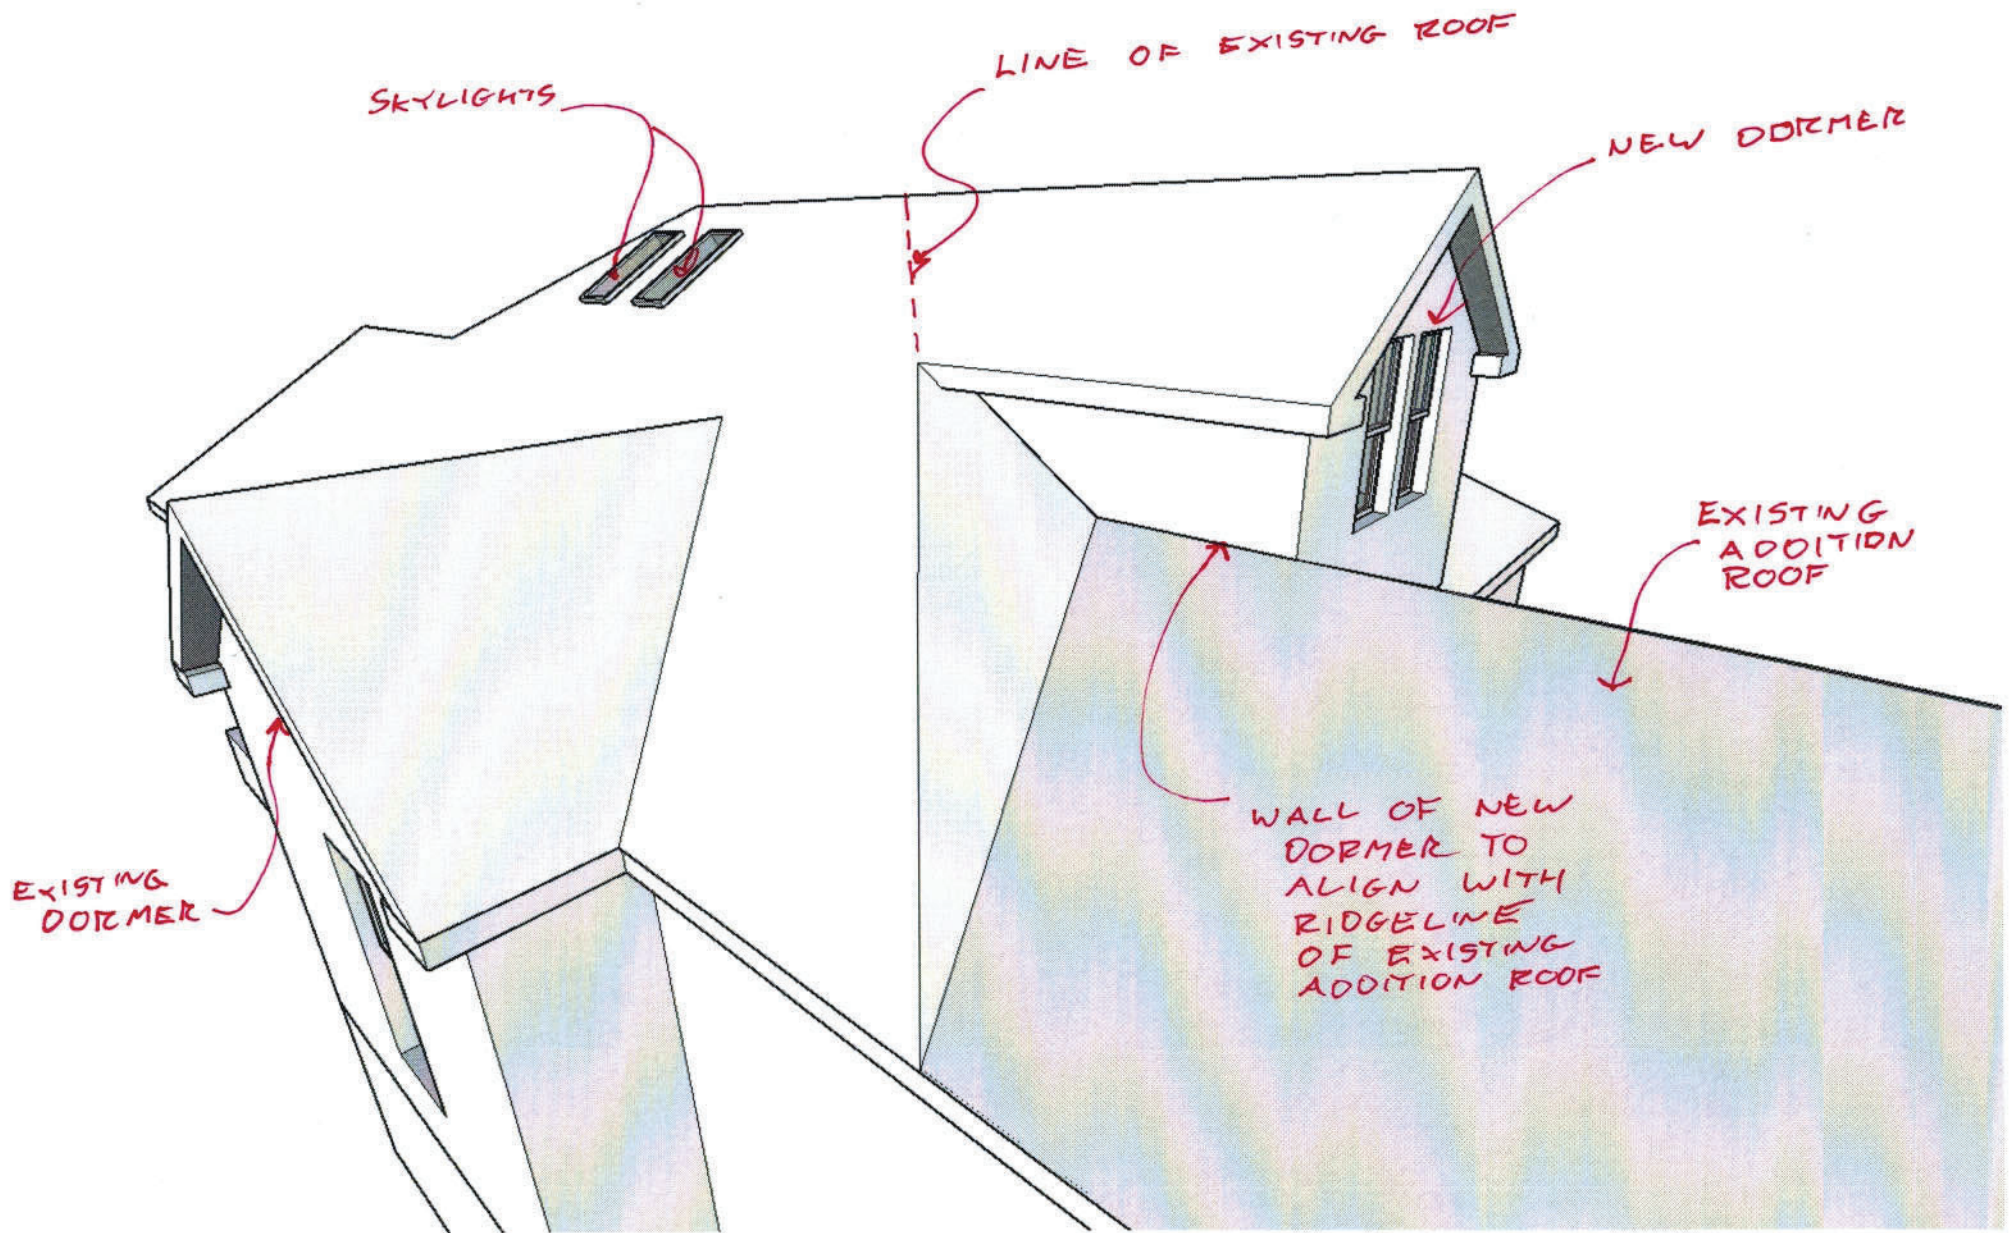 LINE OF EXISTING ROOF
SKYLIGHTS
NEW DORMER
EXISTING
ADDITION
ROOF
WALL OF NEW
DORMER TO
ALIGN WITH
RIDGELINE
OF EXISTING
ADDITION ROOF
EXISTING
DORMER